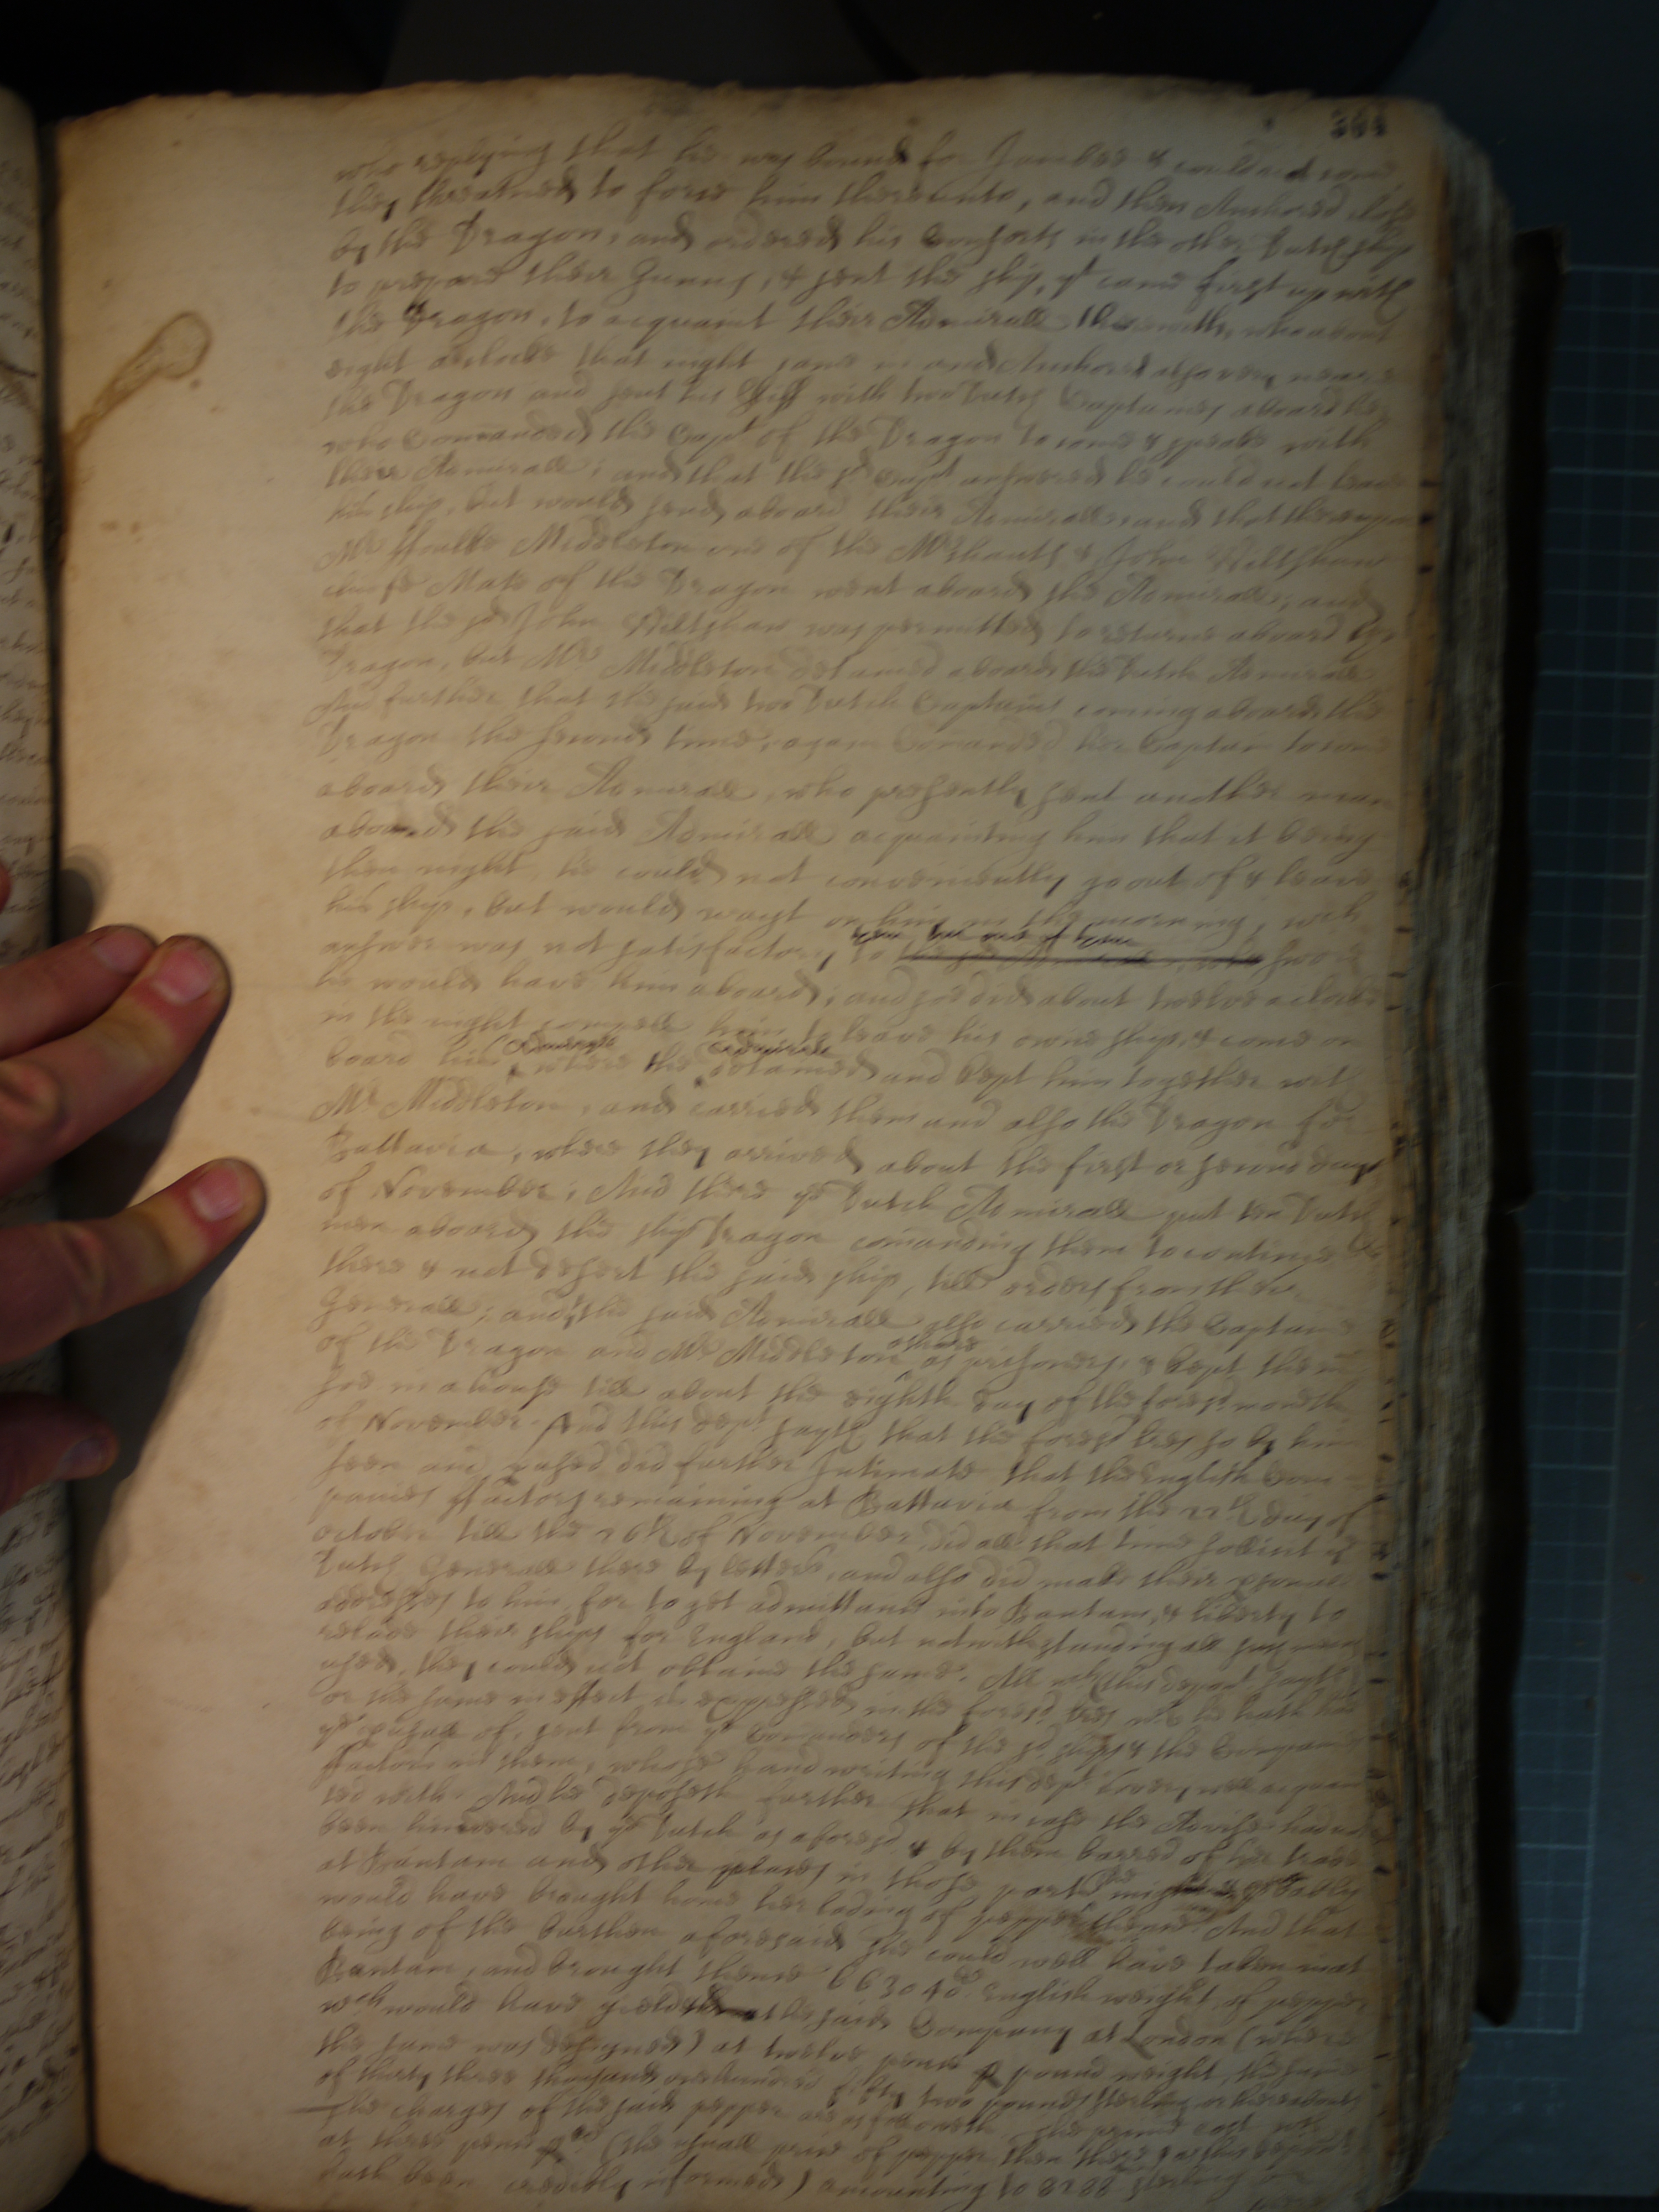 364
who replying that he was bound for Jambee & could not come,
they threatned to force him thereunto, and then Anchored close
by the Dragon, and ordered his Consorts in the other Dutch ships
to prepare their Gunns, & sent the ship, yt came first up with
the Dragon, to acquaint their Admirall therewith, who about
eight aclocke that night came in and Anchored also very neare
the Dragon and sent his Skiff with two Dutch Captaines aboard her
who Comanded the Capt of the Dragon to come & speake with
their Admirall; and that the sd Capt answered he could not leave
his ship, but would send aboard their Admirall, and that thereupon
Mr Middleton one of the Mrchants & John Wiltshaw
cheife Mate of the Dragon went aboard the Admirall; and
that the sd John Wiltshaw was permitted to returne aboard the
Dragon, but Mr Middleton detained aboard the Dutch Admirall
And further that the said two Dutch Captains coming aboard the
Dragon the second time, again Comanded her Captain to come
aboard their Admirall, who presently sent another man
aboard the said Admirall acquainting him that it being
then night, he could not conveniently go out of & leave
his ship, but would wayt on him in the morning, wch
answer was not satisfactory to swore
he would have him aboard; and soe did about twelve aclocke
in the night compell him to leave his owne ship, & come on
board him Admirall where the Admirall detained and kept him together with
Mr Middleton, and carried them and also the Dragon for
Battavia, where they arrived about the first or second day
of November; And there ye Dutch Admirall put ten Dutch
men aboard the ship Dragon comanding them to continue
there & not desert the said ship, till orders from their
Generall; and the said Admirall also carried the Captaine
of the Dragon and Mr Middleton ashore as prisoners, & kept them
soe in a house till about the eighth day of the foresd moneth
of November. And this dept sayth that the foresd lres so by him
seen and pused did further Intimate that the English Com-
panies ffactors remaining at Battavia from the 22th day of
October till the 26th of November, did all that time sollicit ye
Dutch Generall there by letters, and also did make their psonal
addresses to him, for to get admittance into Bantam, & liberty to
relade their ships for England, but notwithstanding all such means
used, they could not obtaine the same. All wch this depont sayth
or the same in effect is expressed in the foresd lres wch he hath had
ye pusall of, sent from ye Comanders of the sd ships & the Companies
ffactors in them, whose hand writing this dept is very well acquain
ted with. And he deposeth further that in case the Advise had not
been hindered by ye Dutch as aforesd & by them barred of her trade
at Bantam and other places in those parts she might probably
would have brought home her lading of pepper thence And that
being of the burthen aforesaid she could well have taken in at
Bantam, and brought thence 663040 lb English weight of pepper
wch would have yeelded the said Company at London (where
the same was designed) at twelve pence p pound weight, the summe
of thirty three thousand one hundred fifty two pounds sterling
The charges of the said pepper are as followeth. The prime cost
at three pence p lb (the usuall price of pepper then there as this depont
hath been credibly informed) amounting to 8288 sterling